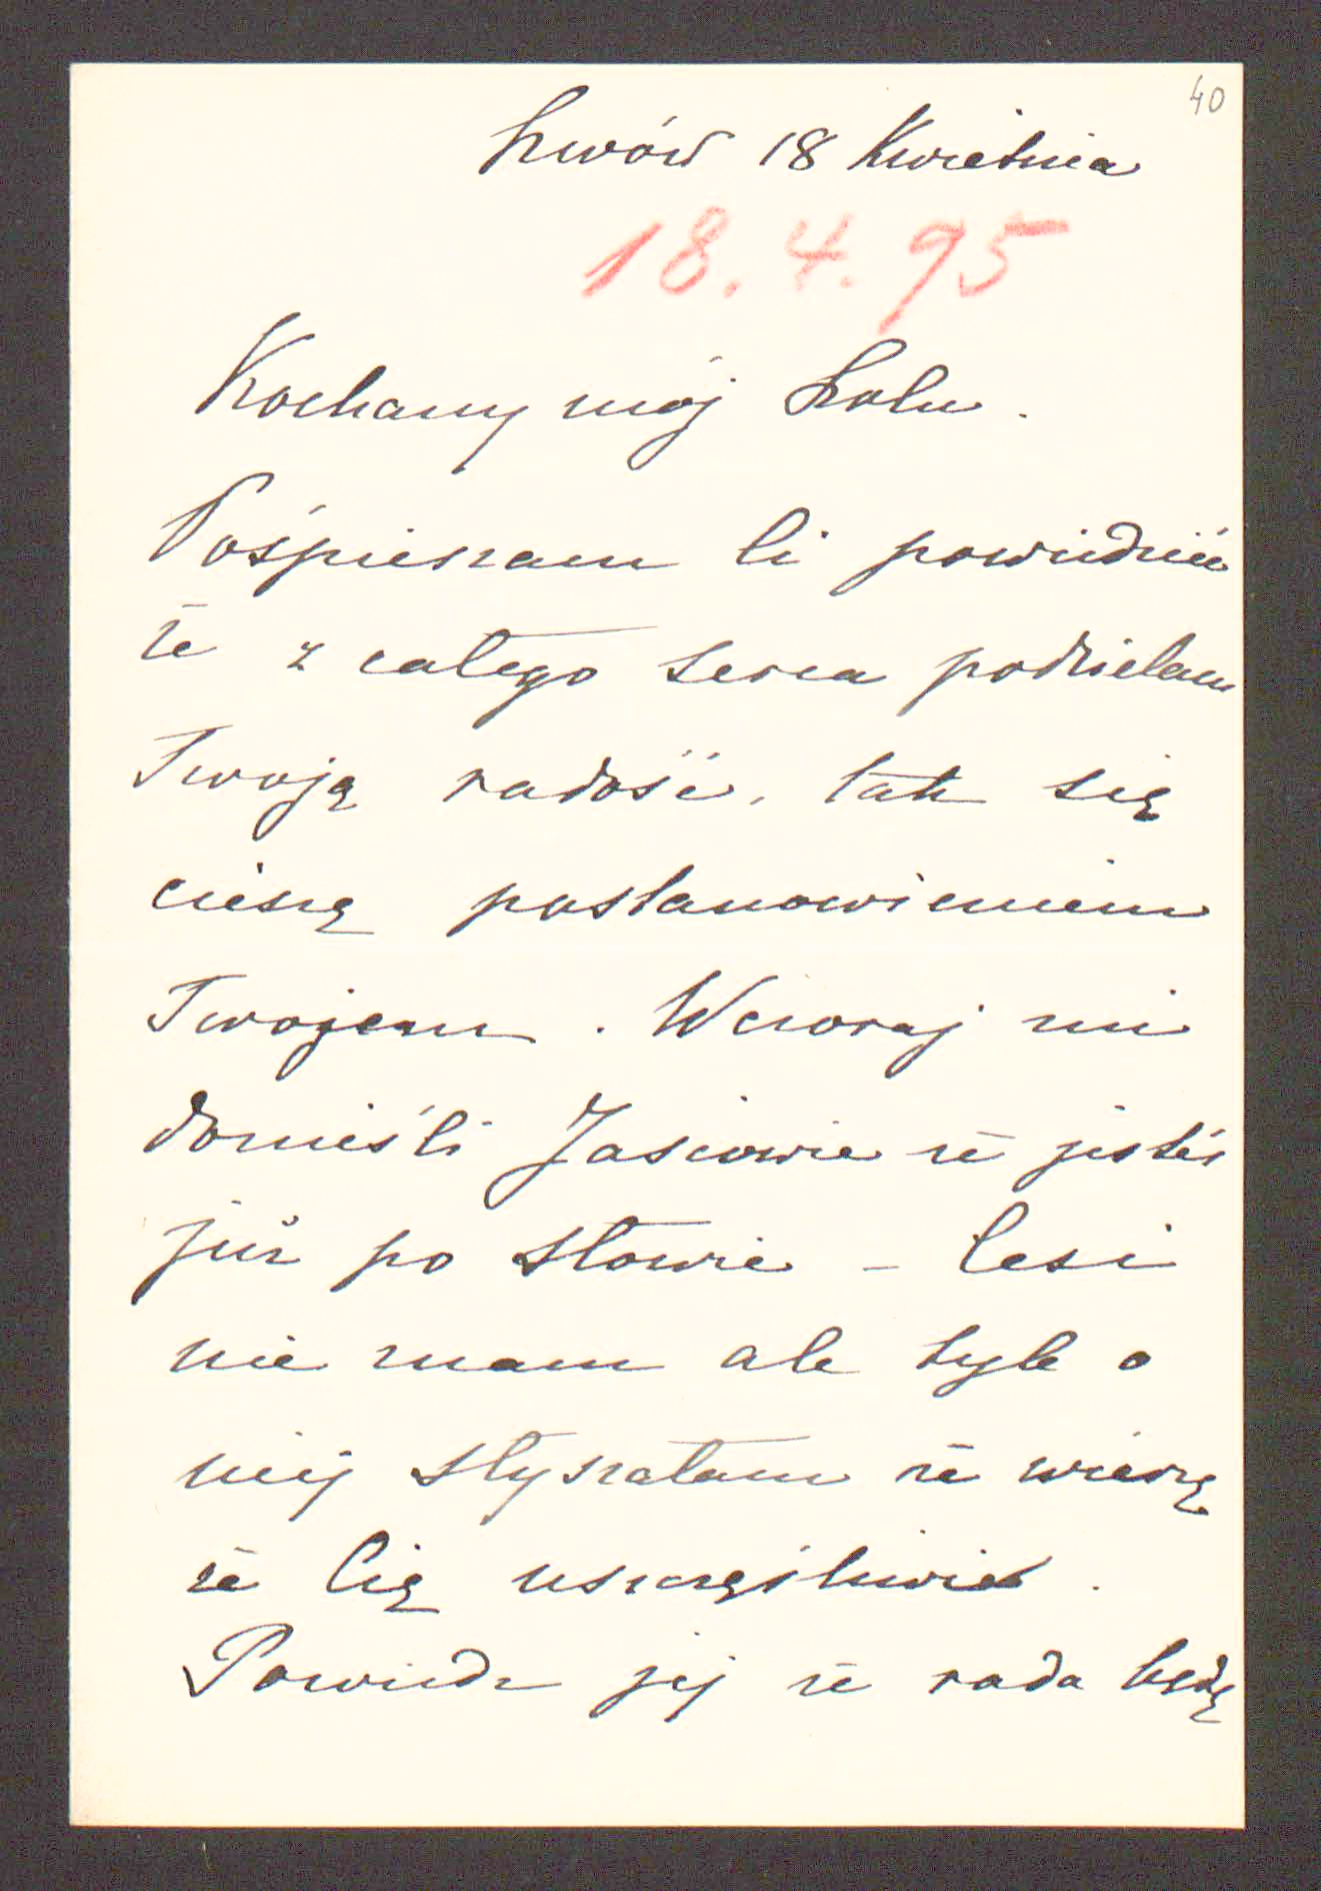 40
Lwów 18 Kwietnia
18.4.95
Kochany mój Lolu.
Pośpieszam Ci powiedzieć
że z całego serca podzielam
Twoją radość, tak się
cieszę postanowieniem
Twojem. Wczoraj mi
donieśli Jasiowie że jesteś
już po słowie – Cesi
nie znam ale tyle o
niej słyszałam że wierzę
że Cię uszczęśliwi.
Powiedz jej że rada będę